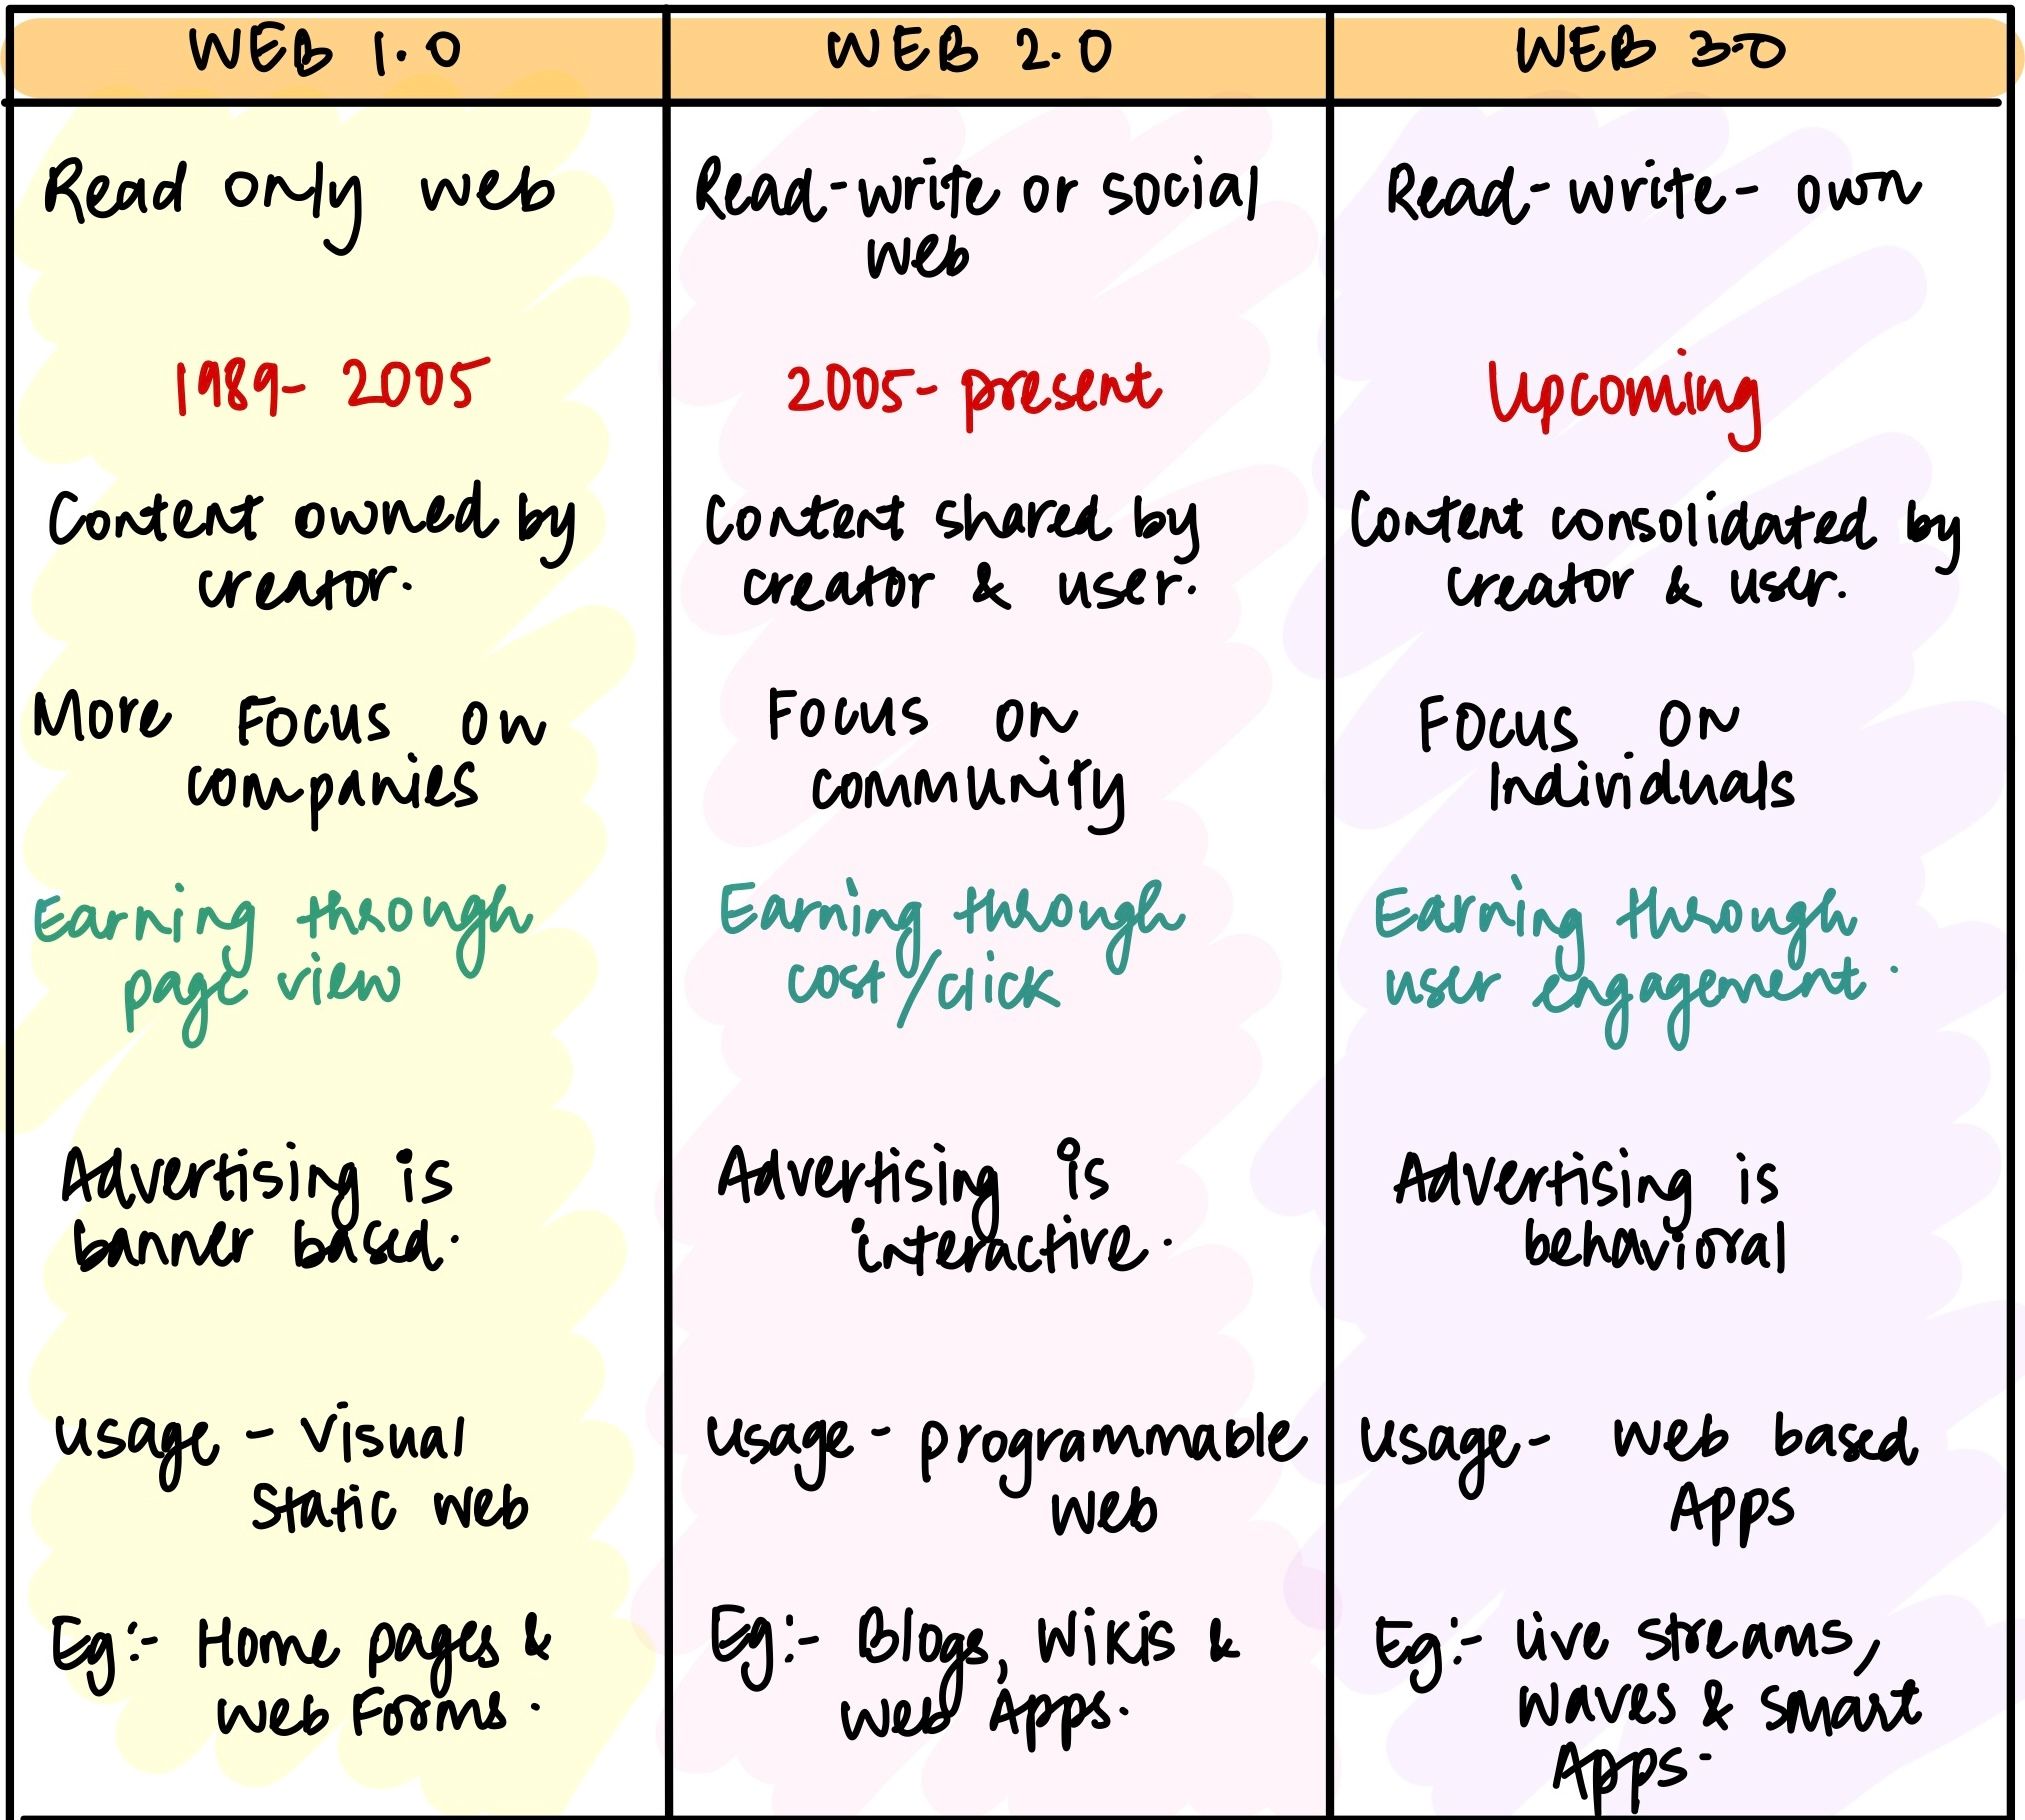 WEB 1.0
Read only web
1989- 2005
Content owned by
creator.
More Focus on
companies
Earning through
page view
Advertising is
banner based.
Usage - Visual
Static web
Eg:- Home pages &
Web Forms.
WEB 2.0
Read-write or social
web
2005- present
Content shared by
creator & user.
Focus on
community
Earning through
cost/click
Advertising is
interactive.
Usage - programmable
web
Eg:- Blogs, Wikis &
web Apps.
WEB 3.0
Read-write-own
Upcoming
Content consolidated by
creator & user.
Focus on
Individuals
Earning through
user engagement.
Advertising is
behavioral
Usage- web based
Apps
Eg:- live streams,
waves & smart
Apps-